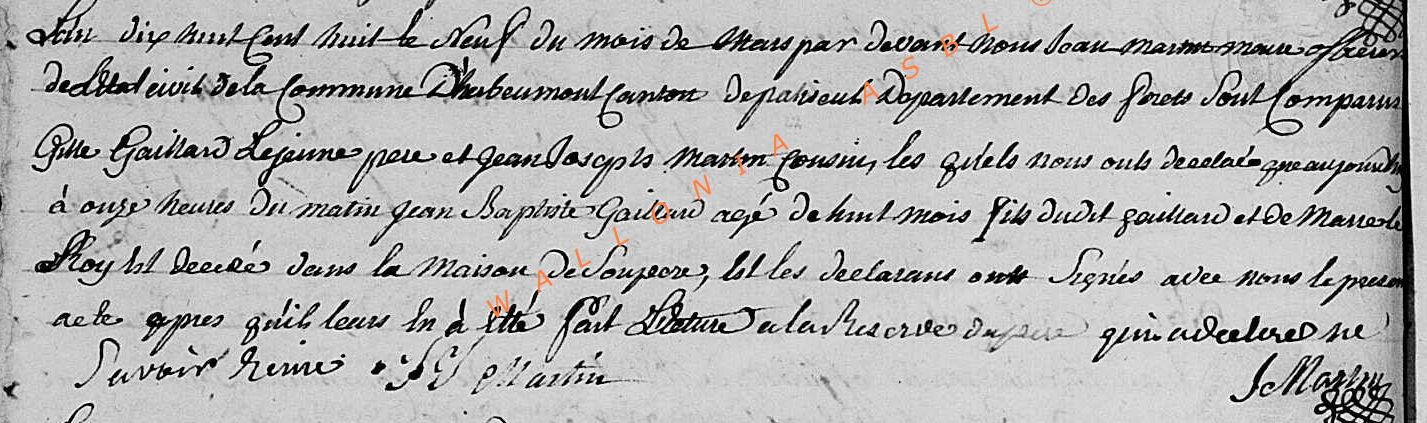 L'an dix huit Cent huit le Neuf du mois de Mars par devant Nous Jean Martin maire officier
de L'Etat civil de la Commune D'herbeumont Canton de paliseul Departement des forets Sont Comparus
Gille Gaillard Lejeune pere et Jean Joseph Martin Cousin, les quels nous onts declaré que aujourdhuy
à onze heures du matin Jean Baptiste Gaillard agé de huit mois fils dudit gaillard et de Marie le
Roy Est decedé dans la Maison de Son pere, Et les declarans ont Signés avec nous le present
acte apres qu'il leurs En à Etté fait Lecture a la Reserve du pere qui a declaré ne
Savoir Ecrire. J J Martin
J Martin
WALLONIA ASBL ©